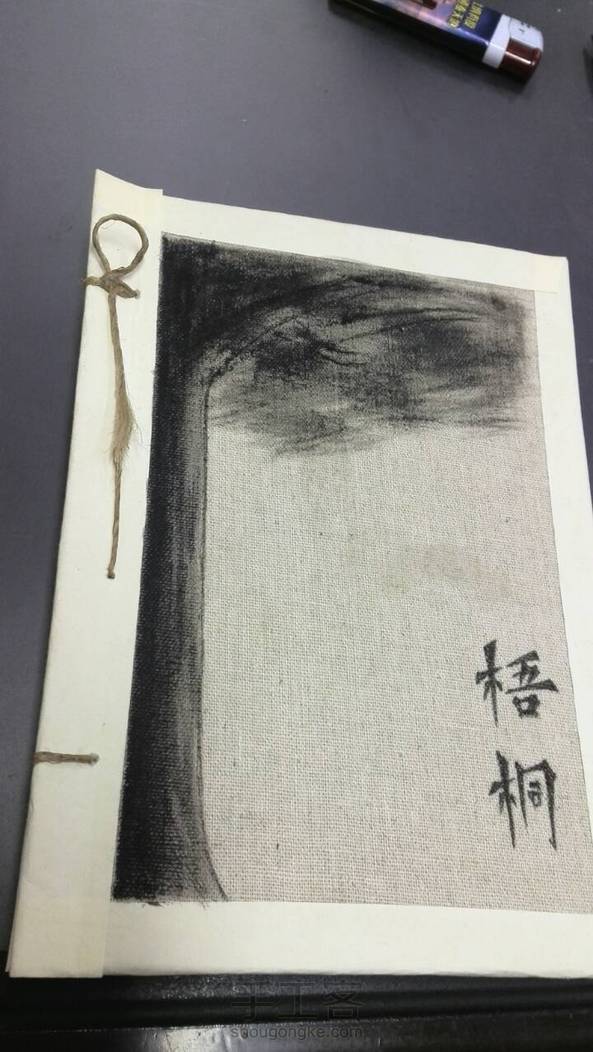 梧
桐
手工客
shougongke.com